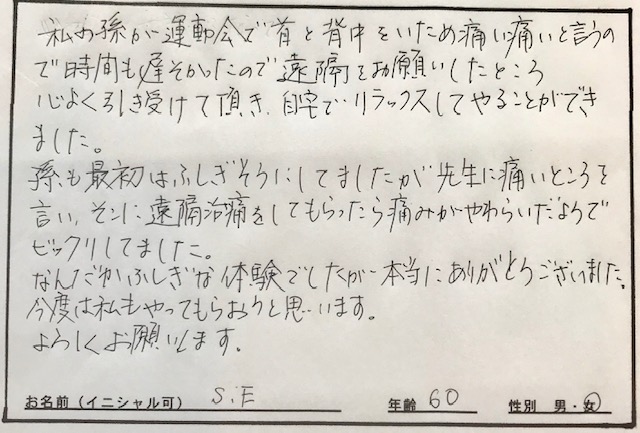 私の孫が運動会で首と背中をいため痛い痛いと言うの
で時間も遅そかったので遠隔をお願いしたところ
心よく引き受けて頂き、自宅でリラックスしてやることができ
ました。
孫も最初はふしぎそうにしてましたが先生に痛いところを
言い、そこに遠隔治療をしてもらったら痛みがやわらいだようで
ビックリしてました。
なんだかふしぎな体験でしたが本当にありがとうございました。
今度は私もやってもらおうと思います。
よろしくお願いします。
お名前(イニシャル可) S.E 年齢 60 性別 男・女